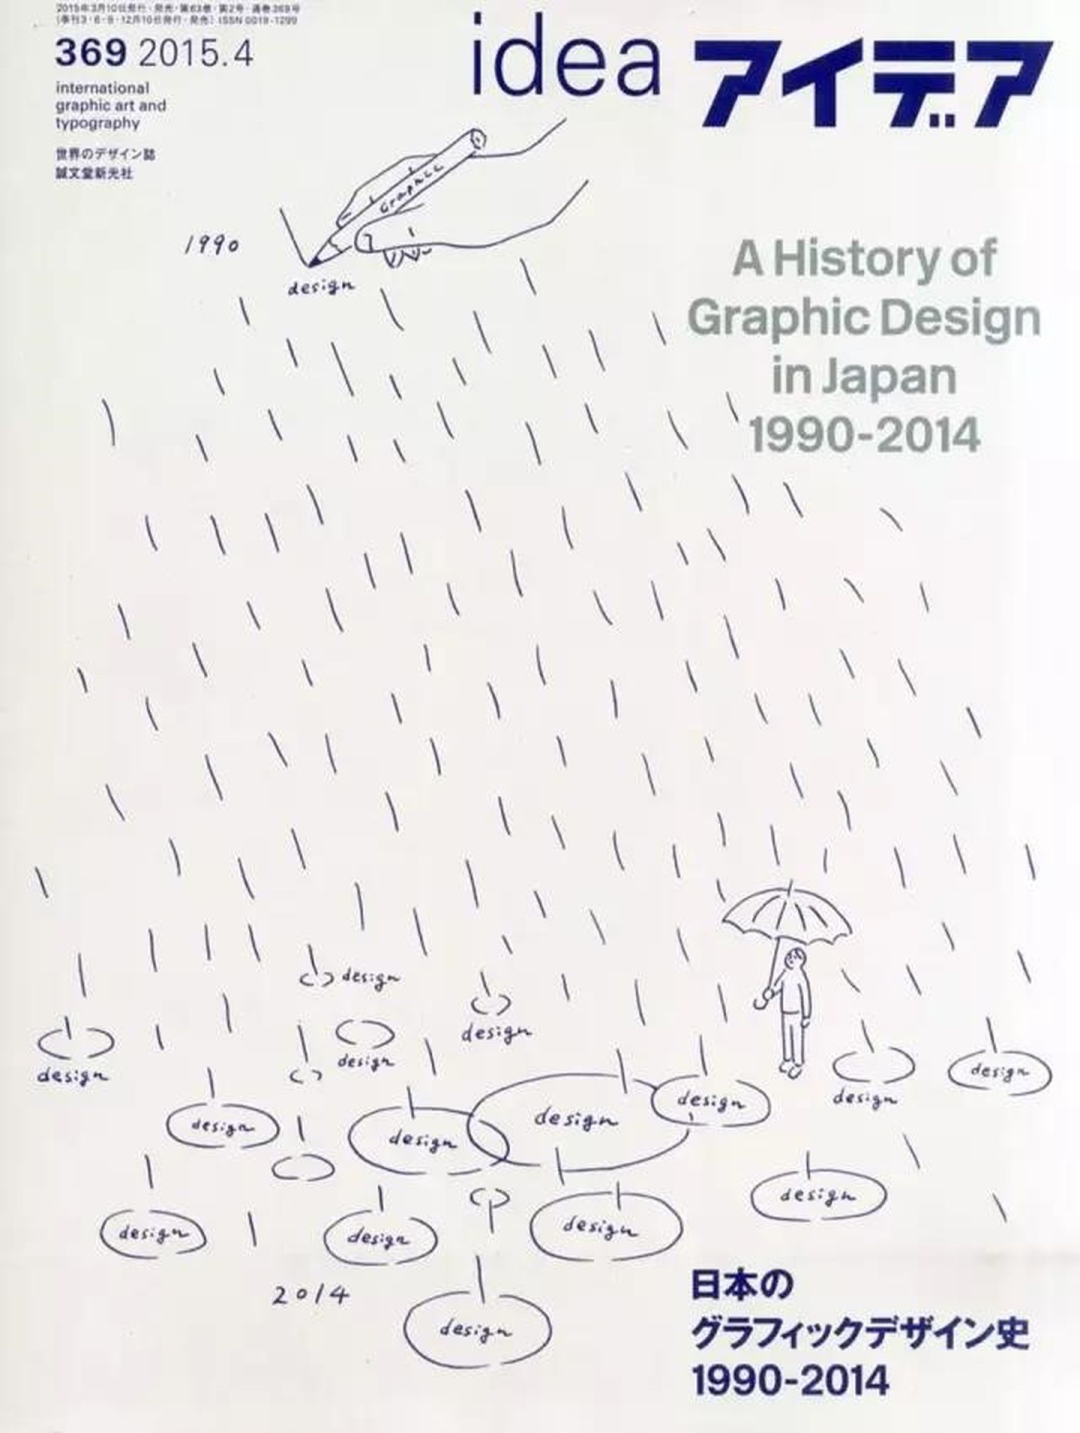 2015年3月10日発行・発売・第63巻・第2号・通巻369号
(季刊3・6・9・12月10日発行・発売) ISSN 0019-1299
369 2015.4
international
graphic art and
typography
世界のデザイン誌
誠文堂新光社
idea アイデア
graphic
1990
design
A History of
Graphic Design
in Japan
1990-2014
design
design
design
design
design
design
design
design
design
design
design
design
design
design
design
2014
design
日本の
グラフィックデザイン史
1990-2014